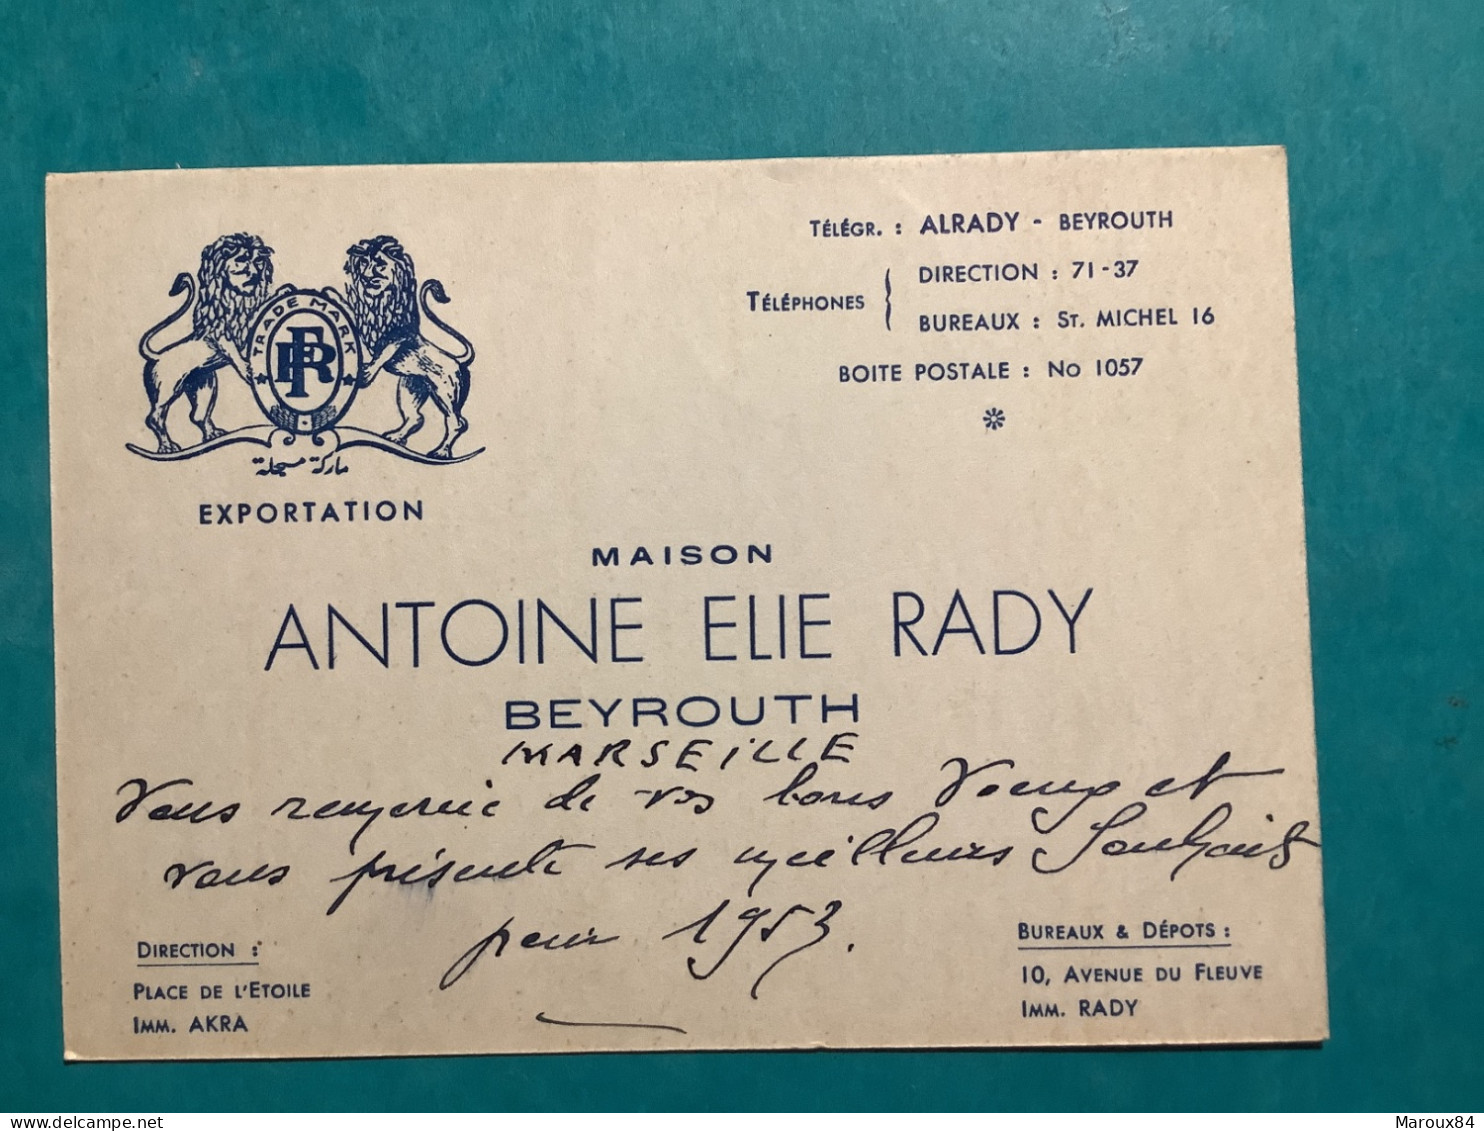 TÉLÉGR. : ALRADY - BEYROUTH
TÉLÉPHONES
DIRECTION : 71-37
BUREAUX : ST. MICHEL 16
BOITE POSTALE : No 1057
TRADE MARK
ماركة مسجلة
EXPORTATION
MAISON
ANTOINE ELIE RADY
BEYROUTH
MARSEILLE
Vous remercie de vos bons Voeux et
vous présente ses meilleurs Souhaits
pour 1953.
DIRECTION :
PLACE DE L'ETOILE
IMM. AKRA
BUREAUX & DÉPOTS :
10, AVENUE DU FLEUVE
IMM. RADY
Delcampe.net
Maroux84